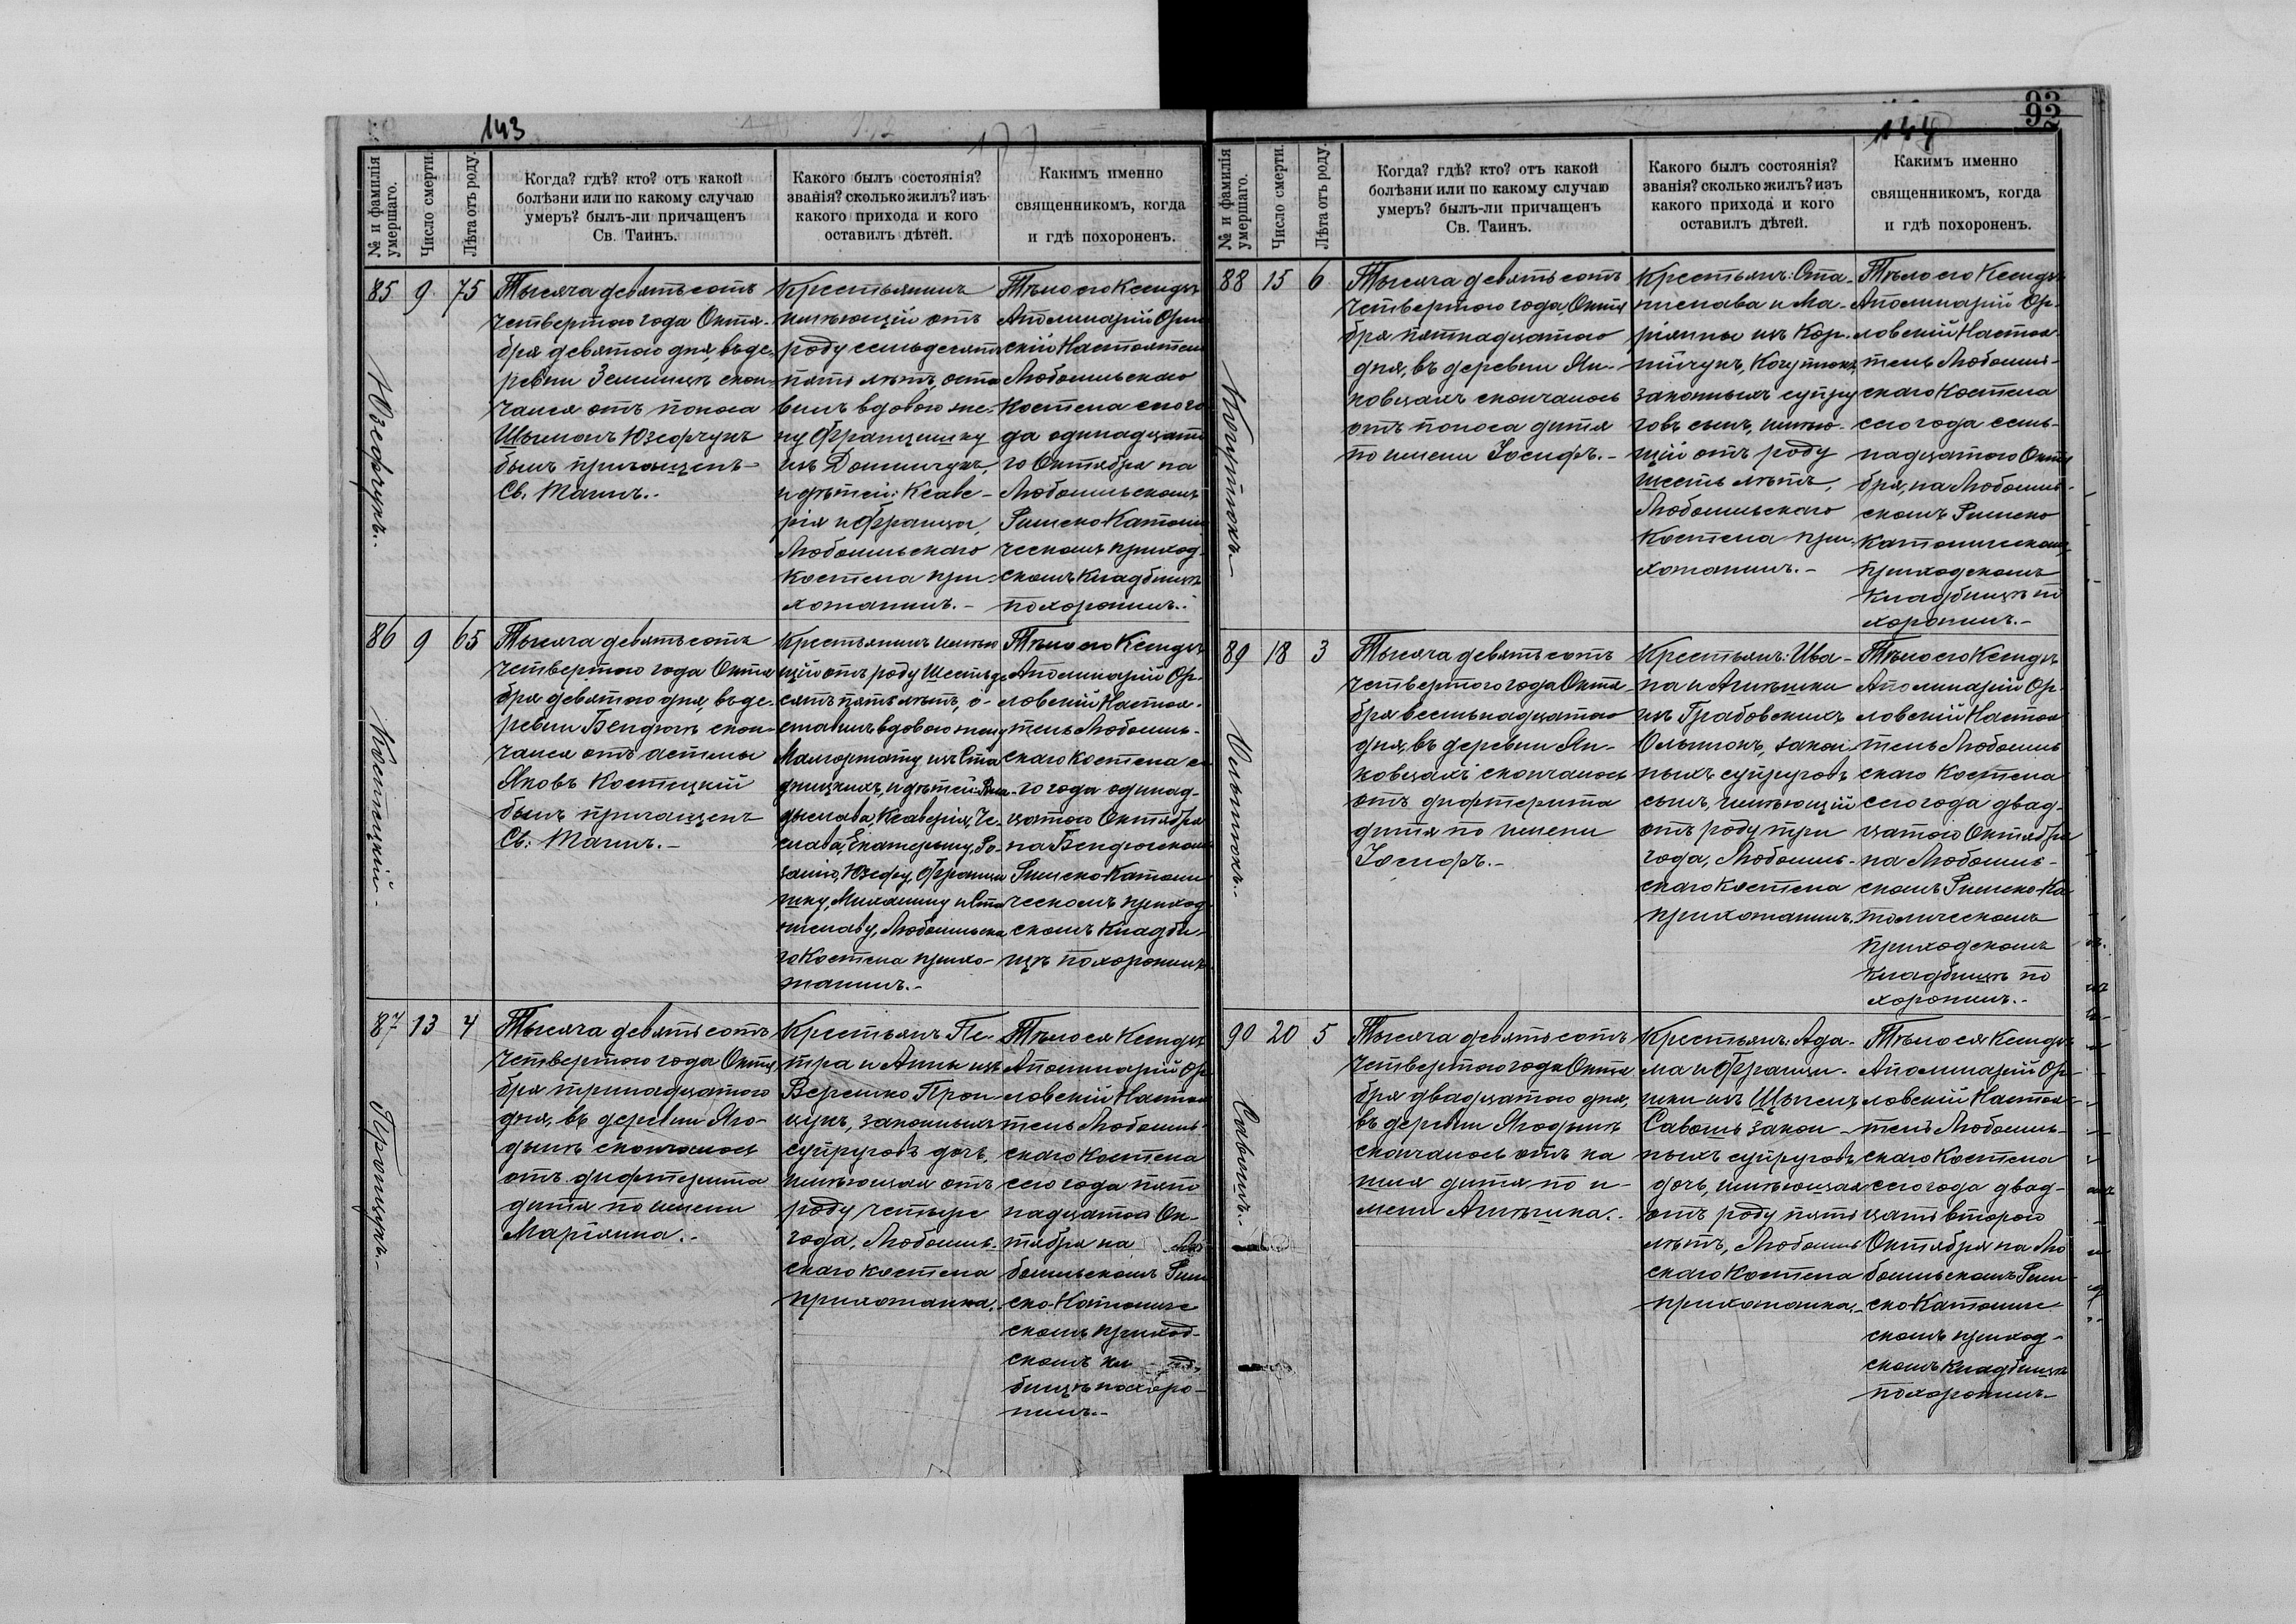 143
№ и фамилія умершаго.
Число смерти.
Лѣта отъ роду.
Когда? гдѣ? кто? отъ какой
болѣзни или по какому случаю
умеръ? былъ-ли причащенъ
Св. Таинъ.
Какого былъ состоянія?
званія? сколько жилъ? изъ
какого прихода и кого
оставилъ дѣтей.
Какимъ именно
священникомъ, когда
и гдѣ похороненъ.
85
Юзефчукъ.
9
75
Тысяча девятьсотъ
четвертого года Октя-
бря девятого дня, въ де-
ревни Земницѣ скон-
чался отъ поноса
Шымонъ Юзефчукъ
былъ причащенъ
Св. Таинъ.
Крестьянинъ
имѣющій отъ
роду семьдесятъ
пять лѣтъ, оста
вилъ вдовою же-
ну Францишку
изъ Доминчукъ,
и дѣтей: Ксаве-
рія и Францы,
Любомльскаго
костела при-
хожанинъ.
Тѣло его Ксендзъ
Аполинарій Орлов
скій Настоятель
Любомльскаго
Костела сего го
да одинадцато
го Октября на
Любомльскомъ
Римско Католи
ческомъ приход
скомъ Кладбищѣ
похоронилъ.
86
Костецкій
9
65
Тысяча девятьсотъ
четвертого года Октя
бря девятого дня, въ де-
ревни Бендюгѣ скон-
чался отъ астмы
Яковъ Костецкій
былъ причащенъ
Св. Таинъ.
Крестьянинъ имѣю
щій отъ роду шестьде
сятъ пять лѣтъ, о-
ставилъ вдовою жену
Малгоржату изъ Ста
дницкихъ, и дѣтей: Вла
дыслава, Ксаверія, Че-
слава, Екатерину, Ро-
залію, Юзефу, Францы
шку, Михалину и Ста
ниславу, Любомльска
го Костела прихо-
жанинъ.
Тѣло его Ксендзъ
Аполинарій Ор-
ловскій Настоя-
тель Любомль-
скаго костела се
го года одинад-
цатого Октября
на Бендюжском
Римско Католи
ческомъ приход
скомъ Кладби-
щѣ похоронилъ.
87
Процукъ
13
4
Тысяча девятьсотъ
четвертого года Октя
бря тринадцатого
дня, въ деревни Яго-
дынѣ скончалось
отъ дифтерита
дитя по имени
Маріянна.
Крестьянъ: Пе-
тра и Анны изъ
Веремко Про-
цукъ, законныхъ
супруговъ дочь,
имѣющая отъ
роду четыре
года, Любомль-
скаго костела
прихожанка.
Тѣло ея Ксендзъ
Аполинарій Ор
ловскій Настоя
тель Любомль-
скаго Костела
сего года пят
надцатого Ок-
тября на Лю
бомльскомъ Рим
ско-Католиче
скомъ приход-
скомъ кл ад-
бищѣ похоро-
нилъ.
92
144
№ и фамилія умершаго.
Число смерти.
Лѣта отъ роду.
Когда? гдѣ? кто? отъ какой
болѣзни или по какому случаю
умеръ? былъ-ли причащенъ
Св. Таинъ.
Какого былъ состоянія?
званія? сколько жилъ? изъ
какого прихода и кого
оставилъ дѣтей.
Какимъ именно
священникомъ, когда
и гдѣ похороненъ.
88
Когутюкъ
15
6
Тысяча девятьсотъ
четвертого года, Октя
бря пятнадцатого
дня, въ деревни Ян-
ковцахъ скончалось
отъ поноса дитя
по имени Іосифъ.
Крестьянъ: Ста-
нислава и Ма-
ріянны изъ Кор-
пичукъ, Когутюкъ,
законныхъ супру
говъ сынъ, имѣю-
щій отъ роду
шесть лѣтъ,
Любомльскаго
Костела при-
хожанинъ.
Тѣло его Ксендзъ
Аполинарій Ор-
ловскій Настоя-
тель Любомль-
скаго Костела
сего года сем-
надцатого Октя
бря, на Любомль-
скомъ Римско
Католическомъ
приходскомъ
кладбищѣ по
хоронилъ.
89
18
3
Тысяча девятьсотъ
четвертого года Октя-
бря восемнадцатого
дня, въ деревни Ян-
ковцахъ скончалось
отъ дифтерита
дитя по имени
Іосифъ.
Крестьянъ: Ива-
на и Агнѣшки
изъ Грабовскихъ
закон-
ныхъ супруговъ
сынъ, имѣющій
отъ роду три
года, Любомль-
скаго костела
прихожанинъ.
Тѣло его Ксендзъ
Аполинарій Ор-
ловскій Настоя
тель Любомль
скаго Костела
сего года двад-
цатого Октября
на Любомль-
скомъ Римско-Ка
толическомъ
приходскомъ
кладбищѣ по
хоронилъ.
90
20
5
Тысяча девятьсотъ
четвертого года Октя
бря двадцатого дня,
въ деревни Ягодынѣ
скончалось отъ ка
шля дитя по и-
мени Агнѣшка.
Крестьянъ: Ада-
ма и Францы-
шки изъ
закон-
ныхъ супруговъ
дочь, имѣющая
отъ роду пять
лѣтъ, Любомль
скаго Костела
прихожанка.
Тѣло ея Ксендзъ
Аполинарій Ор-
ловскій Настоя-
тель Любомль-
скаго Костела
сего года двад-
цать второго
Октября на Лю
бомльскомъ Рим
ско Католиче
скомъ приход-
скомъ кладбищѣ
похоронилъ.